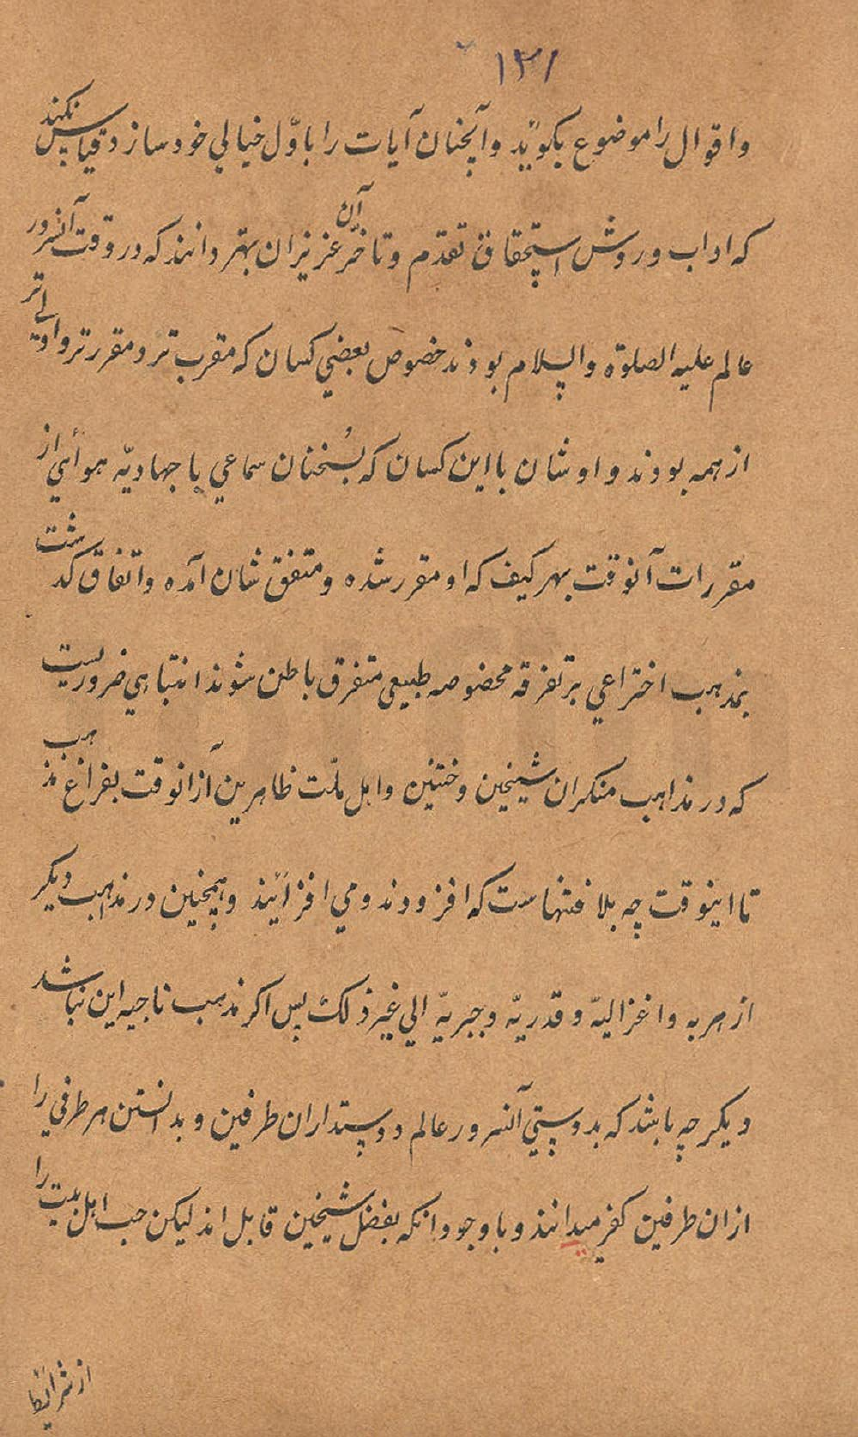 ١٢١
واقوال را موضوع بگوید وآنچنان آیات را باوّل خیالی خود سازد قیاس نکند
که اداب وروش استحقاق تقدّم وتاخّر آن عزیزان بهتر دانند که در وقت آنسرور
عالم علیه الصلوة والسلام بودند خصوص بعضی کسان که مقرب تر ومقرر تر واولی تر
از همه بودند واوشان با این کسان که بسُخنان سماعی یا جهادیّه هوائی از
مقررات آنوقت بهر کیف که او مقرر شده ومتفق شان آمده واتفاق گذشت
بمذهب اختراعی بر تفرقه مخصوصه طبیعی متفرق باطن شوند انتباهی ضروریست
که در مذاهب منکران شیخین وختنین واهل ملّت ظاهرین آزانوقت بفراغ مذهب
تا اینوقت چه بلا فتنهاست که افزودند ومی افزائند وهمچنین در مذاهب دیگر
از هریه واغزالیه وقدریّه وجبریّه الی غیر ذلک پس اگر مذهب ناجیه این نباشد
دیگر چه باشد که بدوستی آنسرور عالم دوستداران طرفین وبدانستن هر طرفی را
ازان طرفین کفر میدانند وباوجود انکه بفضل شیخین قابل اند لیکن حب اهل بیت را
از شرائط